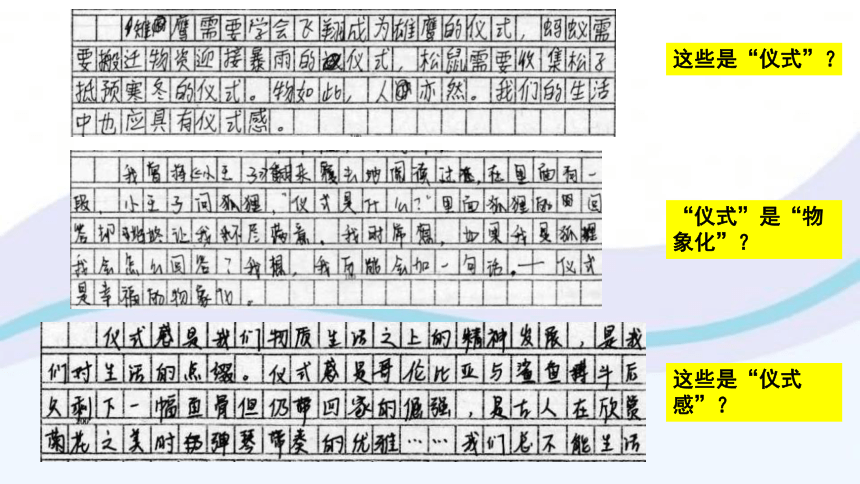 雏鹰需要学会飞翔成为雄鹰的仪式，蚂蚁需
要搬迁物资迎接暴雨的仪式，松鼠需要收集松子
抵预寒冬的仪式。物如此，人亦然。我们的生活
中也应具有仪式感。
这些是“仪式”？
我曾将《小王子》翻来覆去地阅读过，在里面有一
段，小王子问狐狸，“仪式是什么？”里面狐狸的回
答却让我。我时常想，如果我是狐狸
我会怎么回答？我想，我可能会加一句话。—仪式
是幸福的物象化。
“仪式”是“物
象化”？
仪式感是我们物质生活之上的精神发展，是我
们对生活的点缀。仪式感是哥伦比亚与鲨鱼搏斗后
只剩下一幅鱼骨但仍带回家的倔强，是古人在欣赏
菊花之美时弹琴带奏的优雅……我们总不能生活
这些是“仪式
感”？